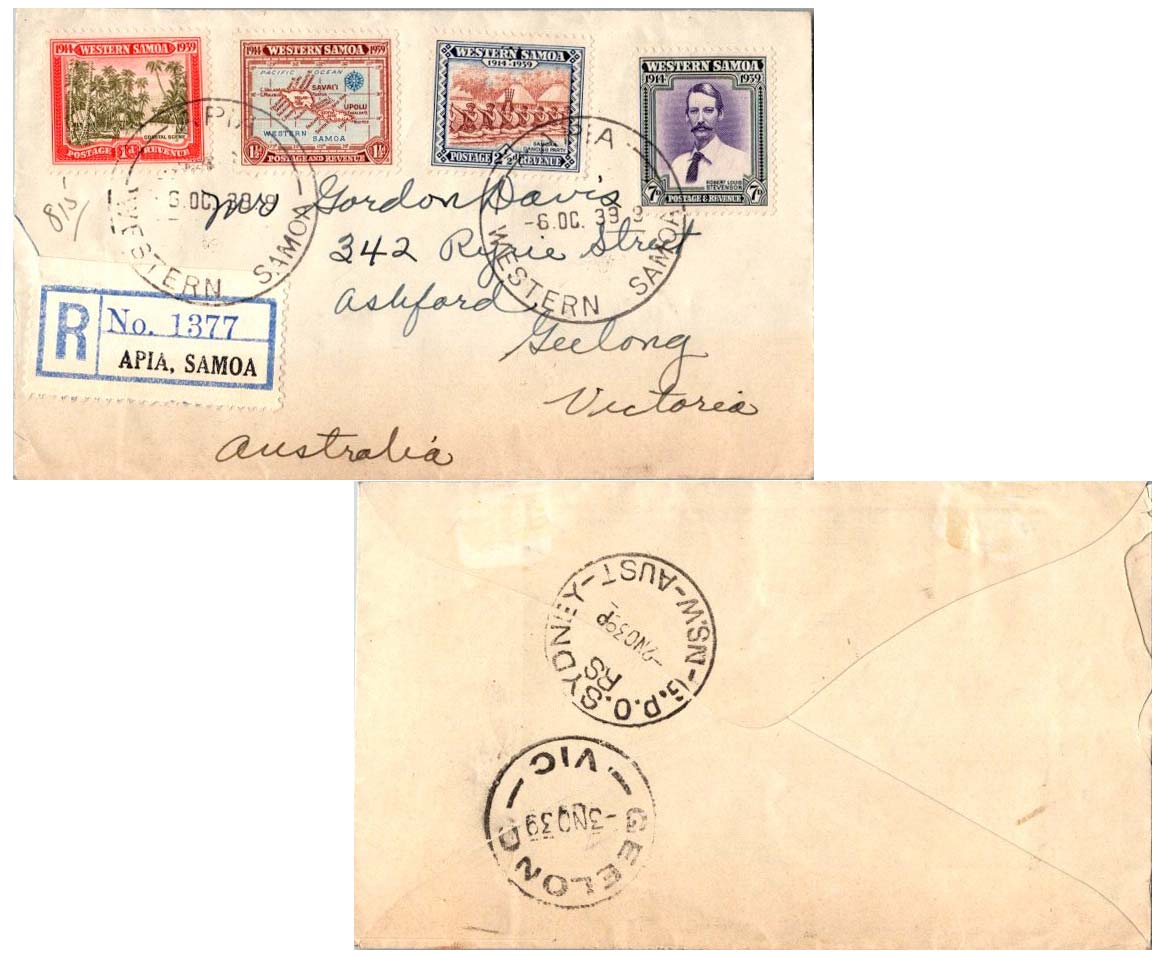 1914 WESTERN SAMOA 1939
COASTAL SCENE
POSTAGE 1d REVENUE
1914 WESTERN SAMOA 1939
PACIFIC OCEAN
SAVAI'I
UPOLU
WESTERN SAMOA
1½d POSTAGE AND REVENUE 1½d
WESTERN SAMOA
1914-1939
SAMOAN DANCING PARTY
POSTAGE 2½d REVENUE
WESTERN SAMOA
1914 1939
ROBERT LOUIS STEVENSON
7D POSTAGE & REVENUE 7D
APIA
-6.OC.39.9
WESTERN SAMOA
APIA
-6.OC.39.9
WESTERN SAMOA
Mr Gordon Davis
342 Ryrie Street
Ashford
Geelong
Victoria
Australia
R
No. 1377
APIA, SAMOA
G.P.O. SYDNEY
RS
N.S.W-AUST
GEELONG
-3NO39
VIC